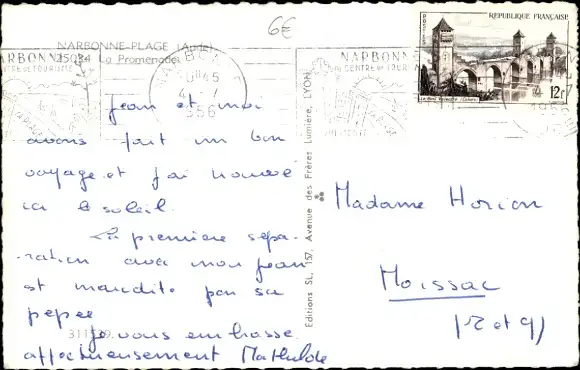 6€
NARBONNE-PLAGE (Aude)
25034 La Promenade
NARBONNE
CENTRE DE TOURISME
4-7
1956
NARBONNE
CENTRE DE TOURISME
REPUBLIQUE FRANÇAISE
12F
Jean et moi
avons fait un bon
voyage et j'ai trouvé
ici le soleil.
La première sépa-
ration avec mon Jean
est maudite par sa
pépée
Je vous embrasse
affectueusement Mathilde
Editions SL, 157, Avenue des Frères Lumière, LYON
Madame Horion
Moissac
(T et G)